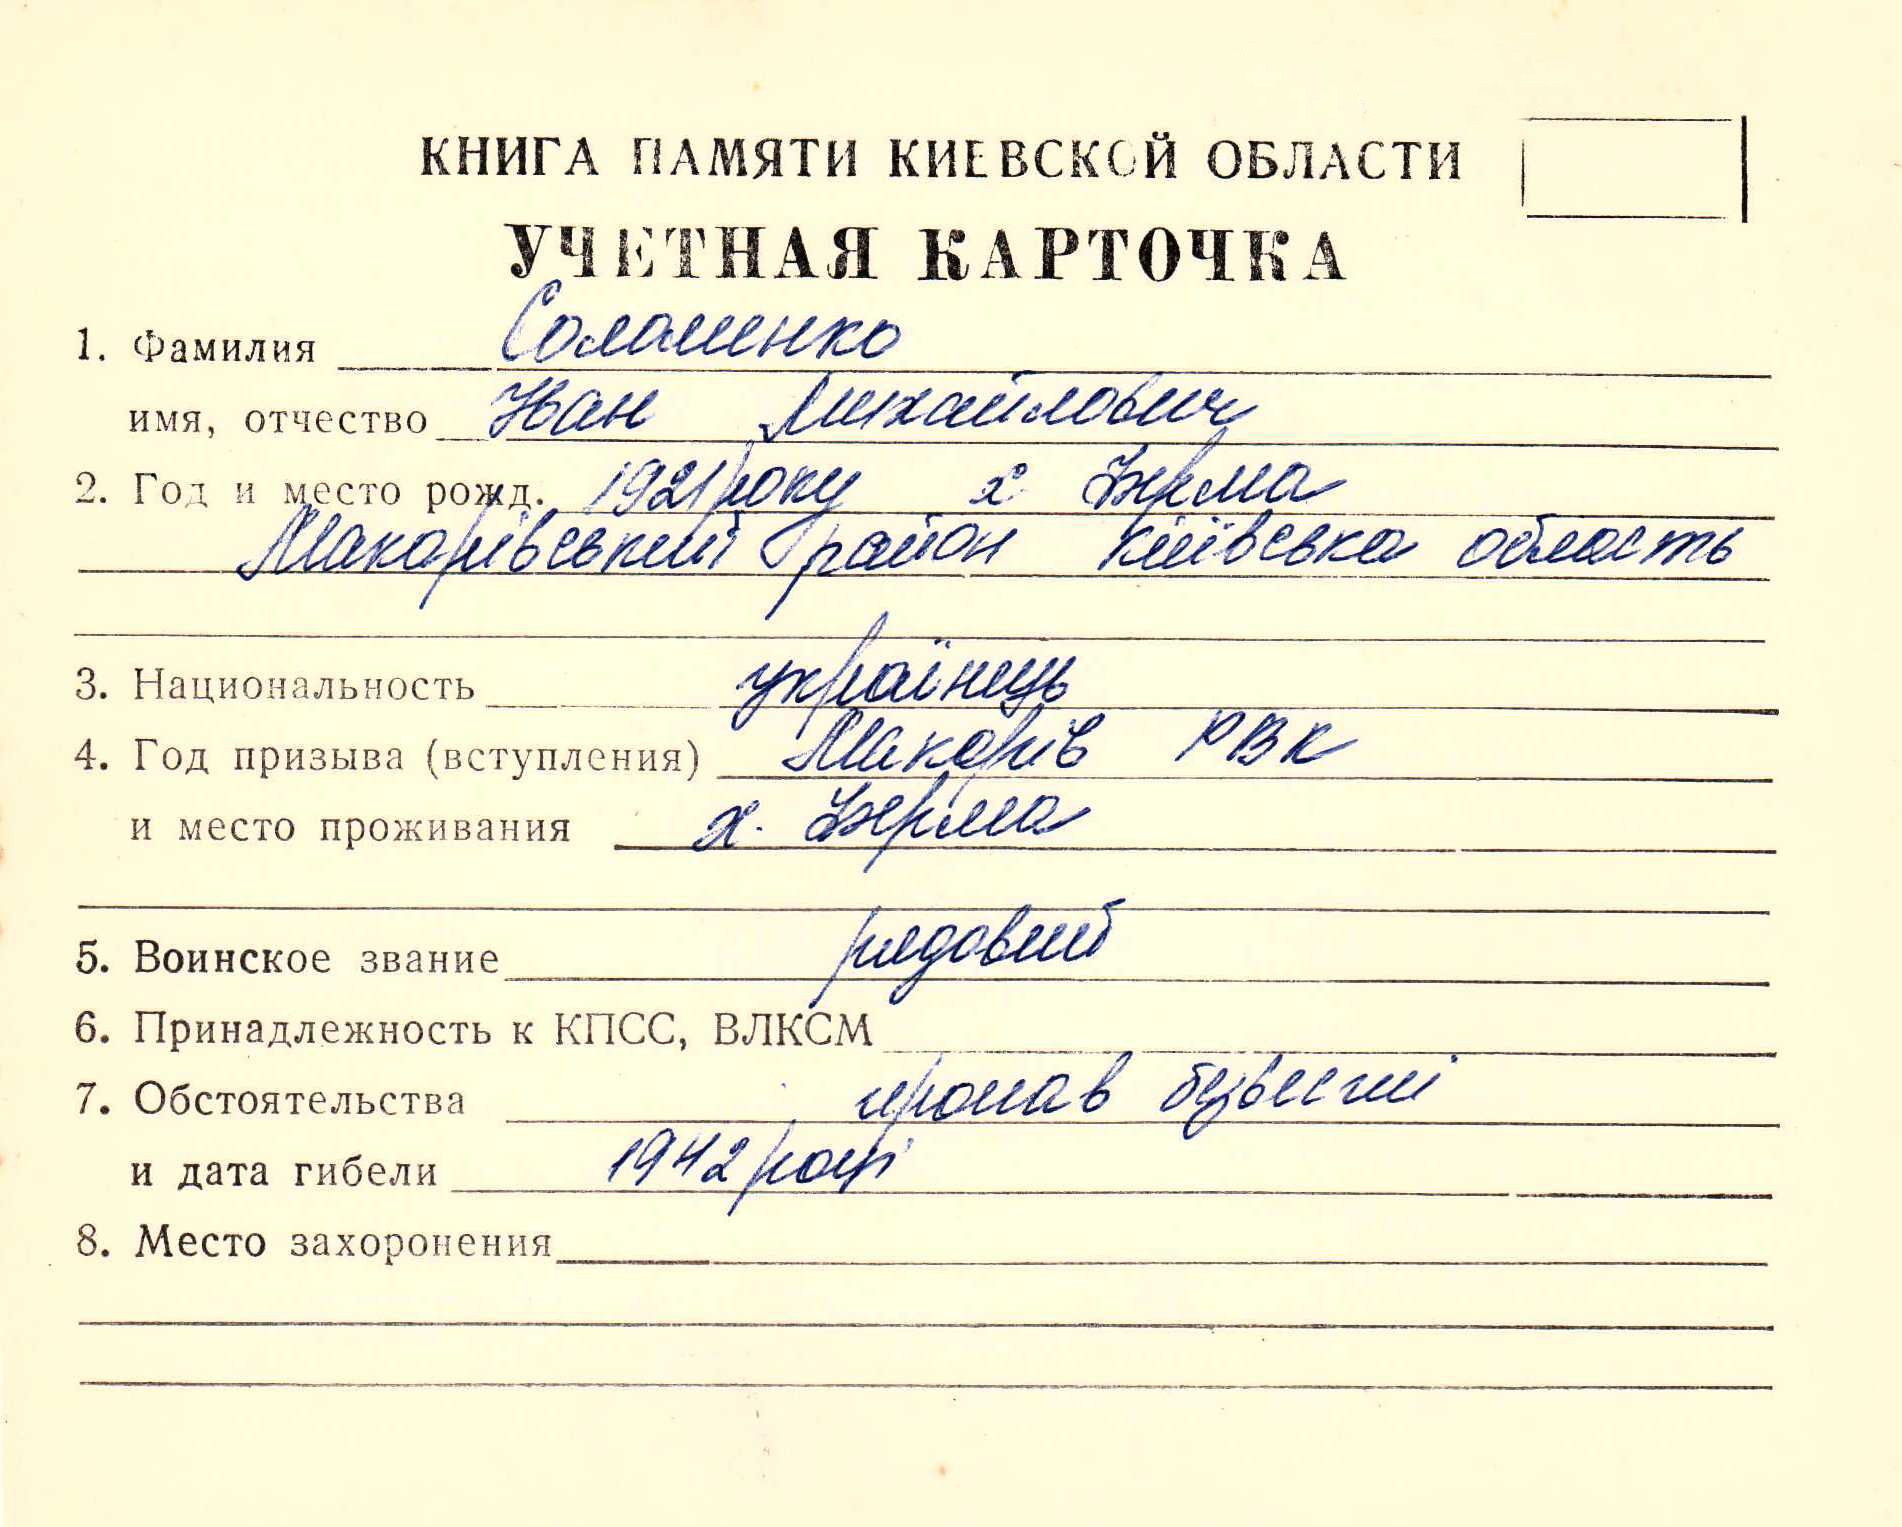 КНИГА ПАМЯТИ КИЕВСКОЙ ОБЛАСТИ
УЧЕТНАЯ КАРТОЧКА
1. Фамилия Соломенко
имя, отчество Іван Михайлович
2. Год и место рожд. 1921 року х.
Макарівський район Київська область
3. Национальность українець
4. Год призыва (вступления) Макарів РВК
и место проживания х.
5. Воинское звание рядовий
6. Принадлежность к КПСС, ВЛКСМ
7. Обстоятельства пропав безвесті
и дата гибели 1942 році
8. Место захоронения